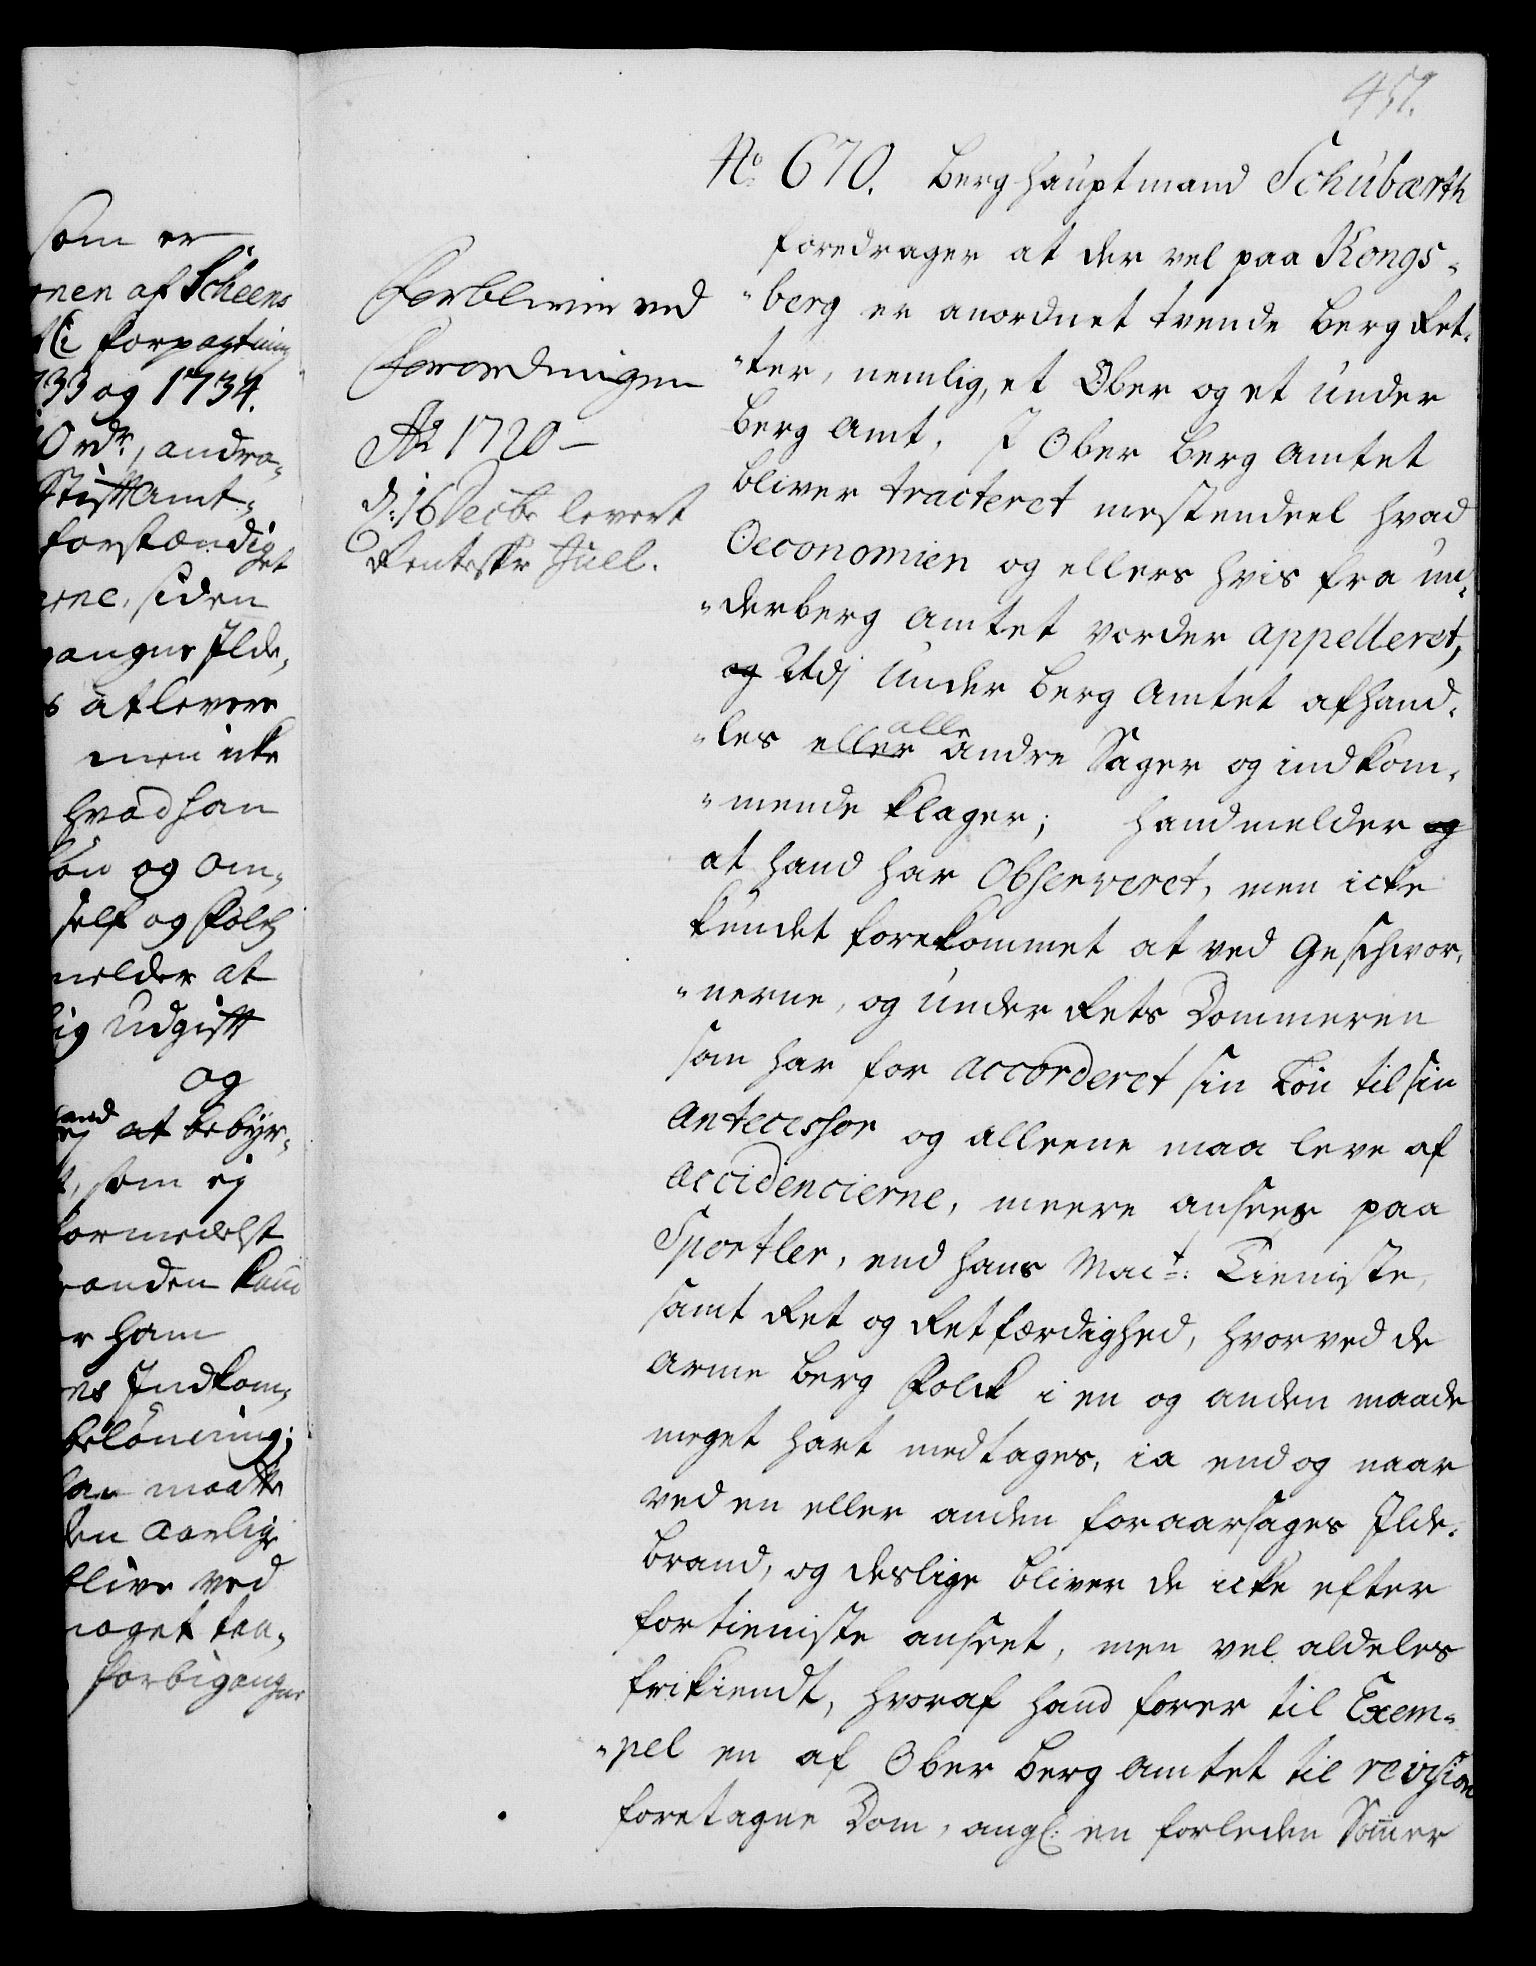 451.
som er
nen af Scheens
forpagtning
733 og 1734.
0 rdr, andra-
Stift Amt-
forstændig
et
erne, siden
ganger Ilde-
s at levere
men icke
hvad han
Løn og om-
self og Folck
melder at
lig Udgift
og
at bebyr-
t, som ej
formedelst
anden kand
r ham
es Indkom-
belönning;
den aarlige
blive ved
noget taa-
forbigangne
Forbliver ved
Forordningen
Ao 1720 -
d: 16 Decbr levert
Renteskr Juel.
No 670. Berghauptmand Schubærth
foredrager at der vel paa Kongs-
-berg er anordnet tvende Berg Ret-
-ter, nemlig, et Ober og et Under
Berg Amt, I Ober Berg Amtet
bliver tracteret mestendeel hvad
Oeconomien og ellers hvis fra un-
-derberg Amtet vorder appelleret,
og Udj Under Berg Amtet afhand-
-les eller alle andre Sager og indkom-
-mende Klager; hand melder og
at hand har Observeret, men icke
kundet forekommet at ved Geschwor-
-nerne, og Under Rets Dommeren
som har for accorderet sin Løn til sin
Antecessor og alleene maa leve af
Accidencierne, meere ansees paa
Sportler, end hans Mayt: Tieniste,
samt Ret og Retfærdighed, hvorved de
arme Berg Folck i en og anden maade
meget hart medtages, ia end og naar
ved en eller anden foraarsages Ilde-
brand, og deslige bliver de icke efter
fortieniste anseet, men vel aldeles
frikiendt, hvoraf hand fører til Exem-
-pel en af Ober Berg Amtet til revision
foretagne Dom, angl: en forleden Sommer